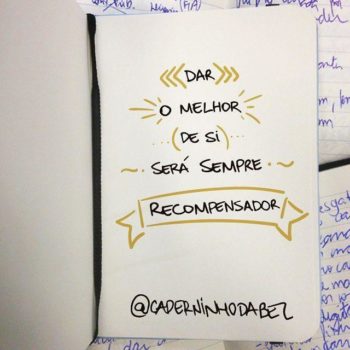 DAR
O MELHOR
DE SI
SERÁ SEMPRE
RECOMPENSADOR
@CADERNINHODABEL